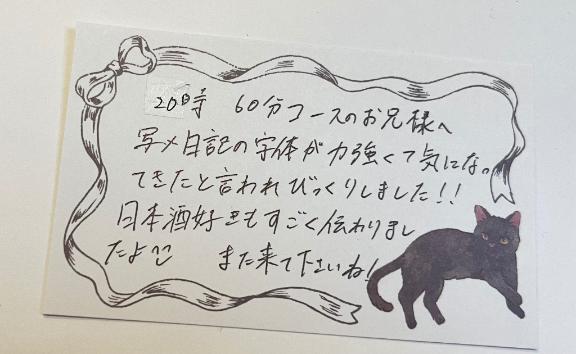 20時 60分コースのお兄様へ
写メ日記の字体が力強くて気になっ
てきたと言われびっくりしました!!
日本酒好きもすごく伝わりまし
たよ♡ また来て下さいね!